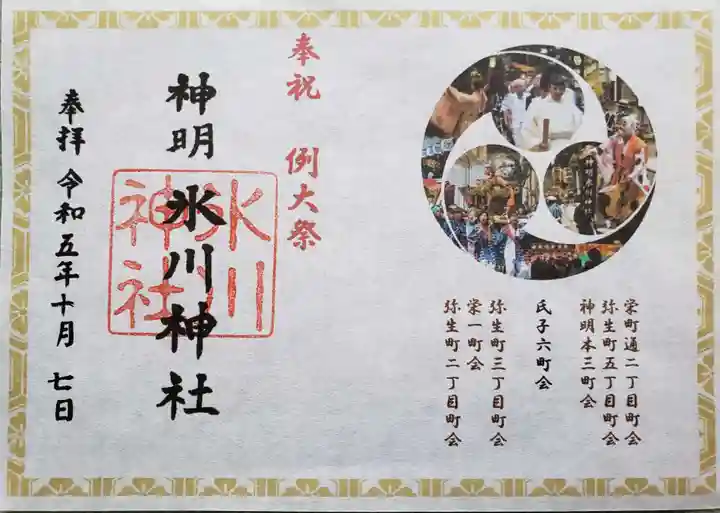 栄町通二丁目町会
弥生町五丁目町会
神明本三町会
氏子六町会
弥生町三丁目町会
栄一町会
弥生町二丁目町会
奉祝 例大祭
神明 氷川神社
氷川
神社
奉拝 令和五年十月 七日